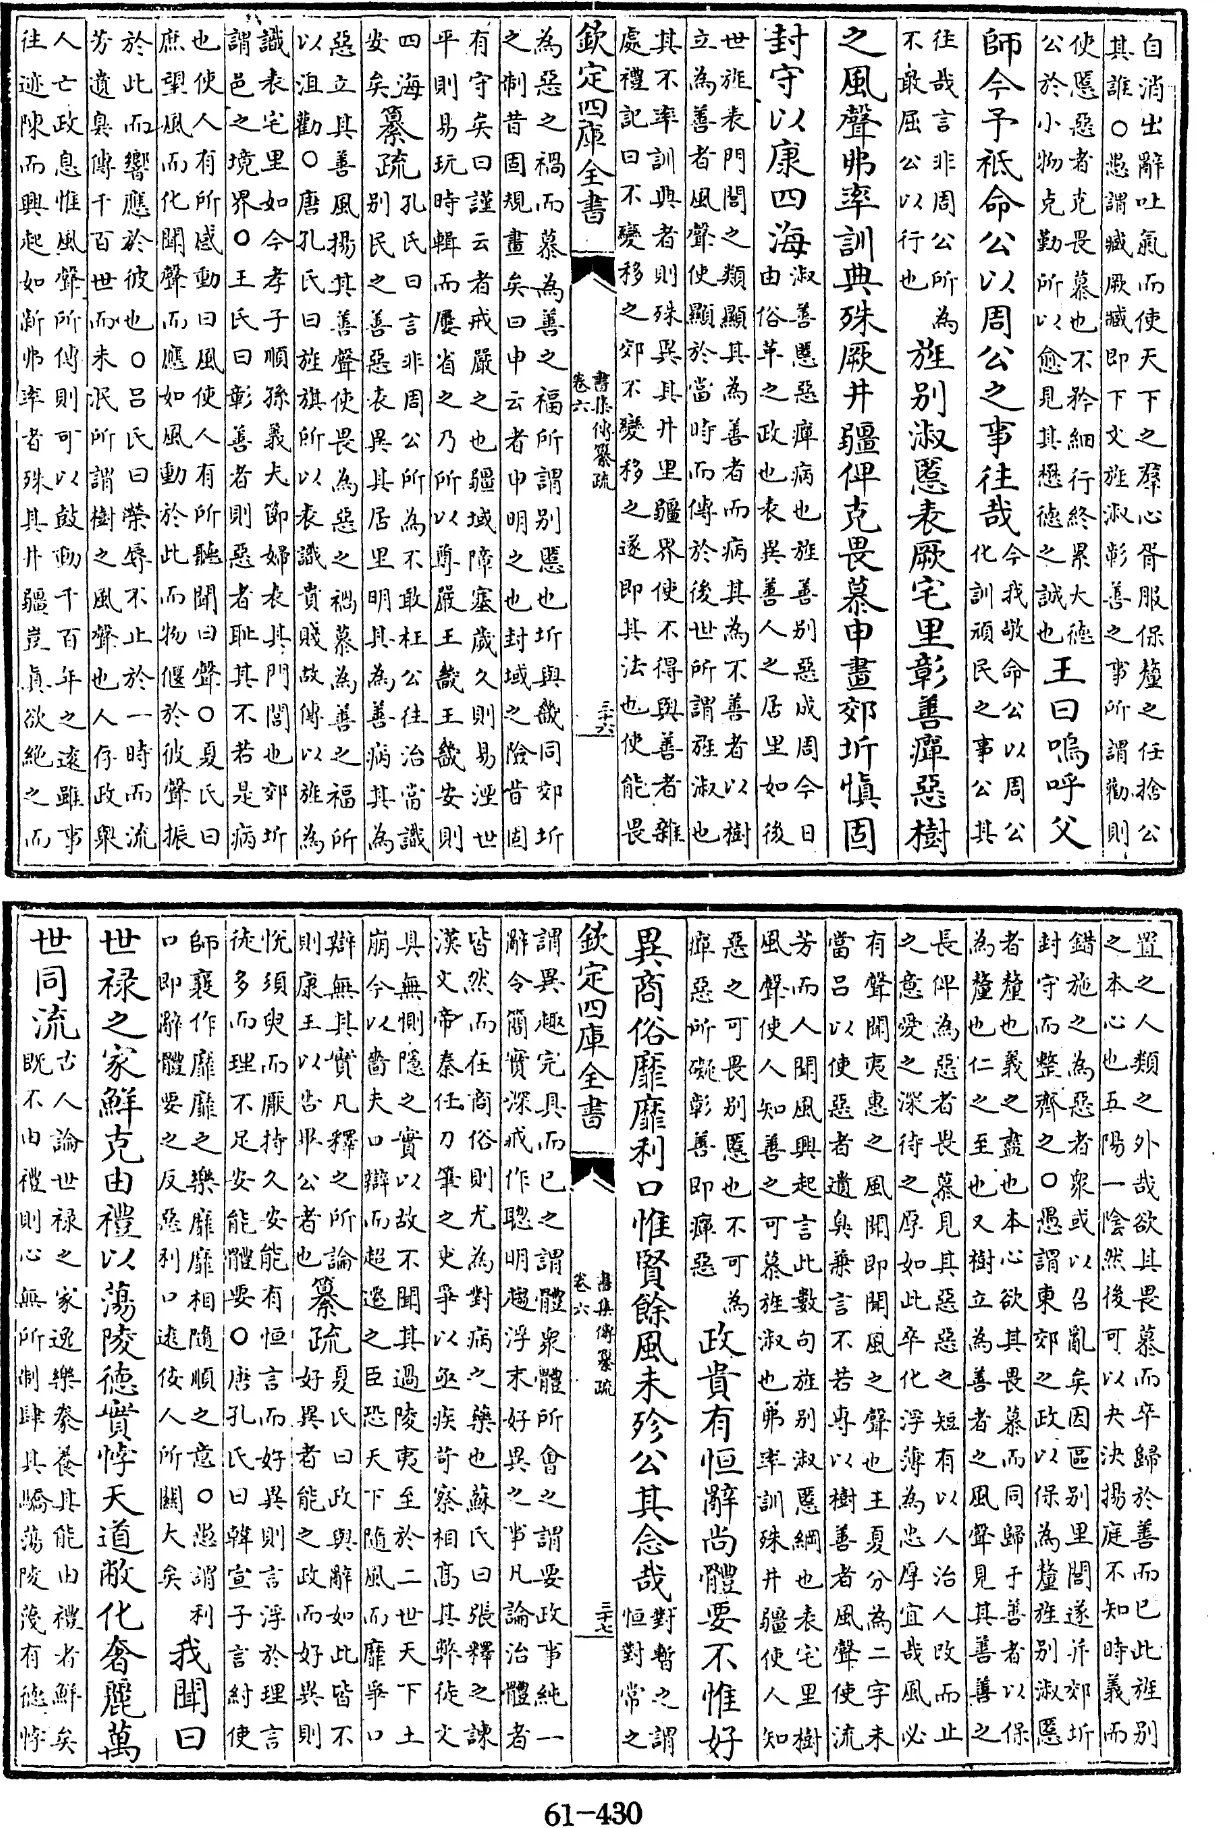 自消出辭吐氣而使天下之羣心胥服保釐之任捨公
其誰○愚謂臧厥臧即下文旌淑彰善之事所謂勸則
使慝惡者克畏慕也不矜細行終累大德
公於小物克勤所以愈見其懋德之誠也
王曰嗚呼父
師今予祗命公以周公之事往哉
今我敬命公以周公
化訓頑民之事公其
往哉言非周公所為
不敢屈公以行也
旌别淑慝表厥宅里彰善癉惡樹
之風聲弗率訓典殊厥井疆俾克畏慕申畫郊圻慎固
封守以康四海
淑善慝惡癉病也旌善别惡成周今日
由俗革之政也表異善人之居里如後
世旌表門閭之類顯其為善者而病其為不善者以樹
立為善者風聲使顯於當時而傳於後世所謂旌淑也
其不率訓典者則殊異其井里疆界使不得與善者雜
處禮記曰不變移之郊不變移之遂即其法也使能畏
欽定四庫全書
書集傳纂疏
卷六
三十六
為惡之禍而慕為善之福所謂别慝也圻與畿同郊圻
之制昔固規畫矣曰申云者申明之也封域之險昔固
有守矣曰謹云者戒嚴之也疆域障塞歲久則易湮世
平則易玩時輯而屢省之乃所以尊嚴王畿王畿安則
四海
安矣
纂疏
孔氏曰言非周公所為不敢枉公往治當識
别民之善惡表異其居里明其為善病其為
惡立其善風揚其善聲使畏為惡之禍慕為善之福所
以沮勸○唐孔氏曰旌旗所以表識貴賤故傳以旌為
識表宅里如今孝子順孫義夫節婦表其門閭也郊圻
謂邑之境界○王氏曰彰善者則惡者耻其不若是病
也使人有所感動曰風使人有所聽聞曰聲○夏氏曰
庶望風而化聞聲而應如風動於此而物偃於彼聲振
於此而響應於彼也○呂氏曰榮辱不止於一時而流
芳遺臭傳千百世而未泯所謂樹之風聲也人存政舉
人亡政息惟風聲所傳則可以鼓動千百年之遠雖事
往迹陳而興起如斯弗率者殊其井疆豈真欲絶之而
置之人類之外哉欲其畏慕而卒歸於善而已此旌别
之本心也五陽一陰然後可以夬決揚庭不知時義而
錯施之為惡者衆或以召亂矣因區别里閭遂并郊圻
封守而整齊之○愚謂東郊之政以保為釐旌别淑慝
者釐也義之盡也本心欲其畏慕而同歸于善者以保
為釐也仁之至也又樹立為善者之風聲見其善善之
長俾為惡者畏慕見其惡惡之短有以人治人改而止
之意愛之深待之厚如此卒化浮薄為忠厚宜哉風必
有聲聞夷惠之風聞即聞風之聲也王夏分為二字未
當呂以使惡者遺臭兼言不若專以樹善者風聲使流
芳而人聞風興起言此數句旌别淑慝綱也表宅里樹
風聲使人知善之可慕旌淑也弗率訓殊井疆使人知
惡之可畏别慝也不可為
癉惡所礙彰善即癉惡
政貴有恒辭尚體要不惟好
異商俗靡靡利口惟賢餘風未殄公其念哉
對暫之謂
恒對常之
欽定四庫全書
書集傳纂疏
卷六
三十七
謂異趣完具而已之謂體衆體所會之謂要政事純一
辭令簡實深戒作聰明趨浮末好異之事凡論治體者
皆然而在商俗則尤為對病之藥也蘇氏曰張釋之諫
漢文帝秦任刀筆之吏爭以亟疾苛察相高其弊徒文
具無惻隱之實以故不聞其過陵夷至於二世天下土
崩今以嗇夫口辯而超遷之臣恐天下隨風而靡爭口
辯無其實凡釋之所論
則康王以告畢公者也
纂疏
夏氏曰政與辭如此皆不
好異者能之政而好異則
悅須臾而厭持久安能有恒言而好異則言浮於理言
徒多而理不足安能體要○唐孔氏曰韓宣子言紂使
師襄作靡靡之樂靡靡相隨順之意○愚謂利
口即辭體要之反惡利口遠佞人所關大矣
我聞曰
世祿之家鮮克由禮以蕩陵德實悖天道敝化奢麗萬
世同流
古人論世祿之家逸樂豢養其能由禮者鮮矣
既不由禮則心無所制肆其驕蕩陵蔑有德悖
61-430